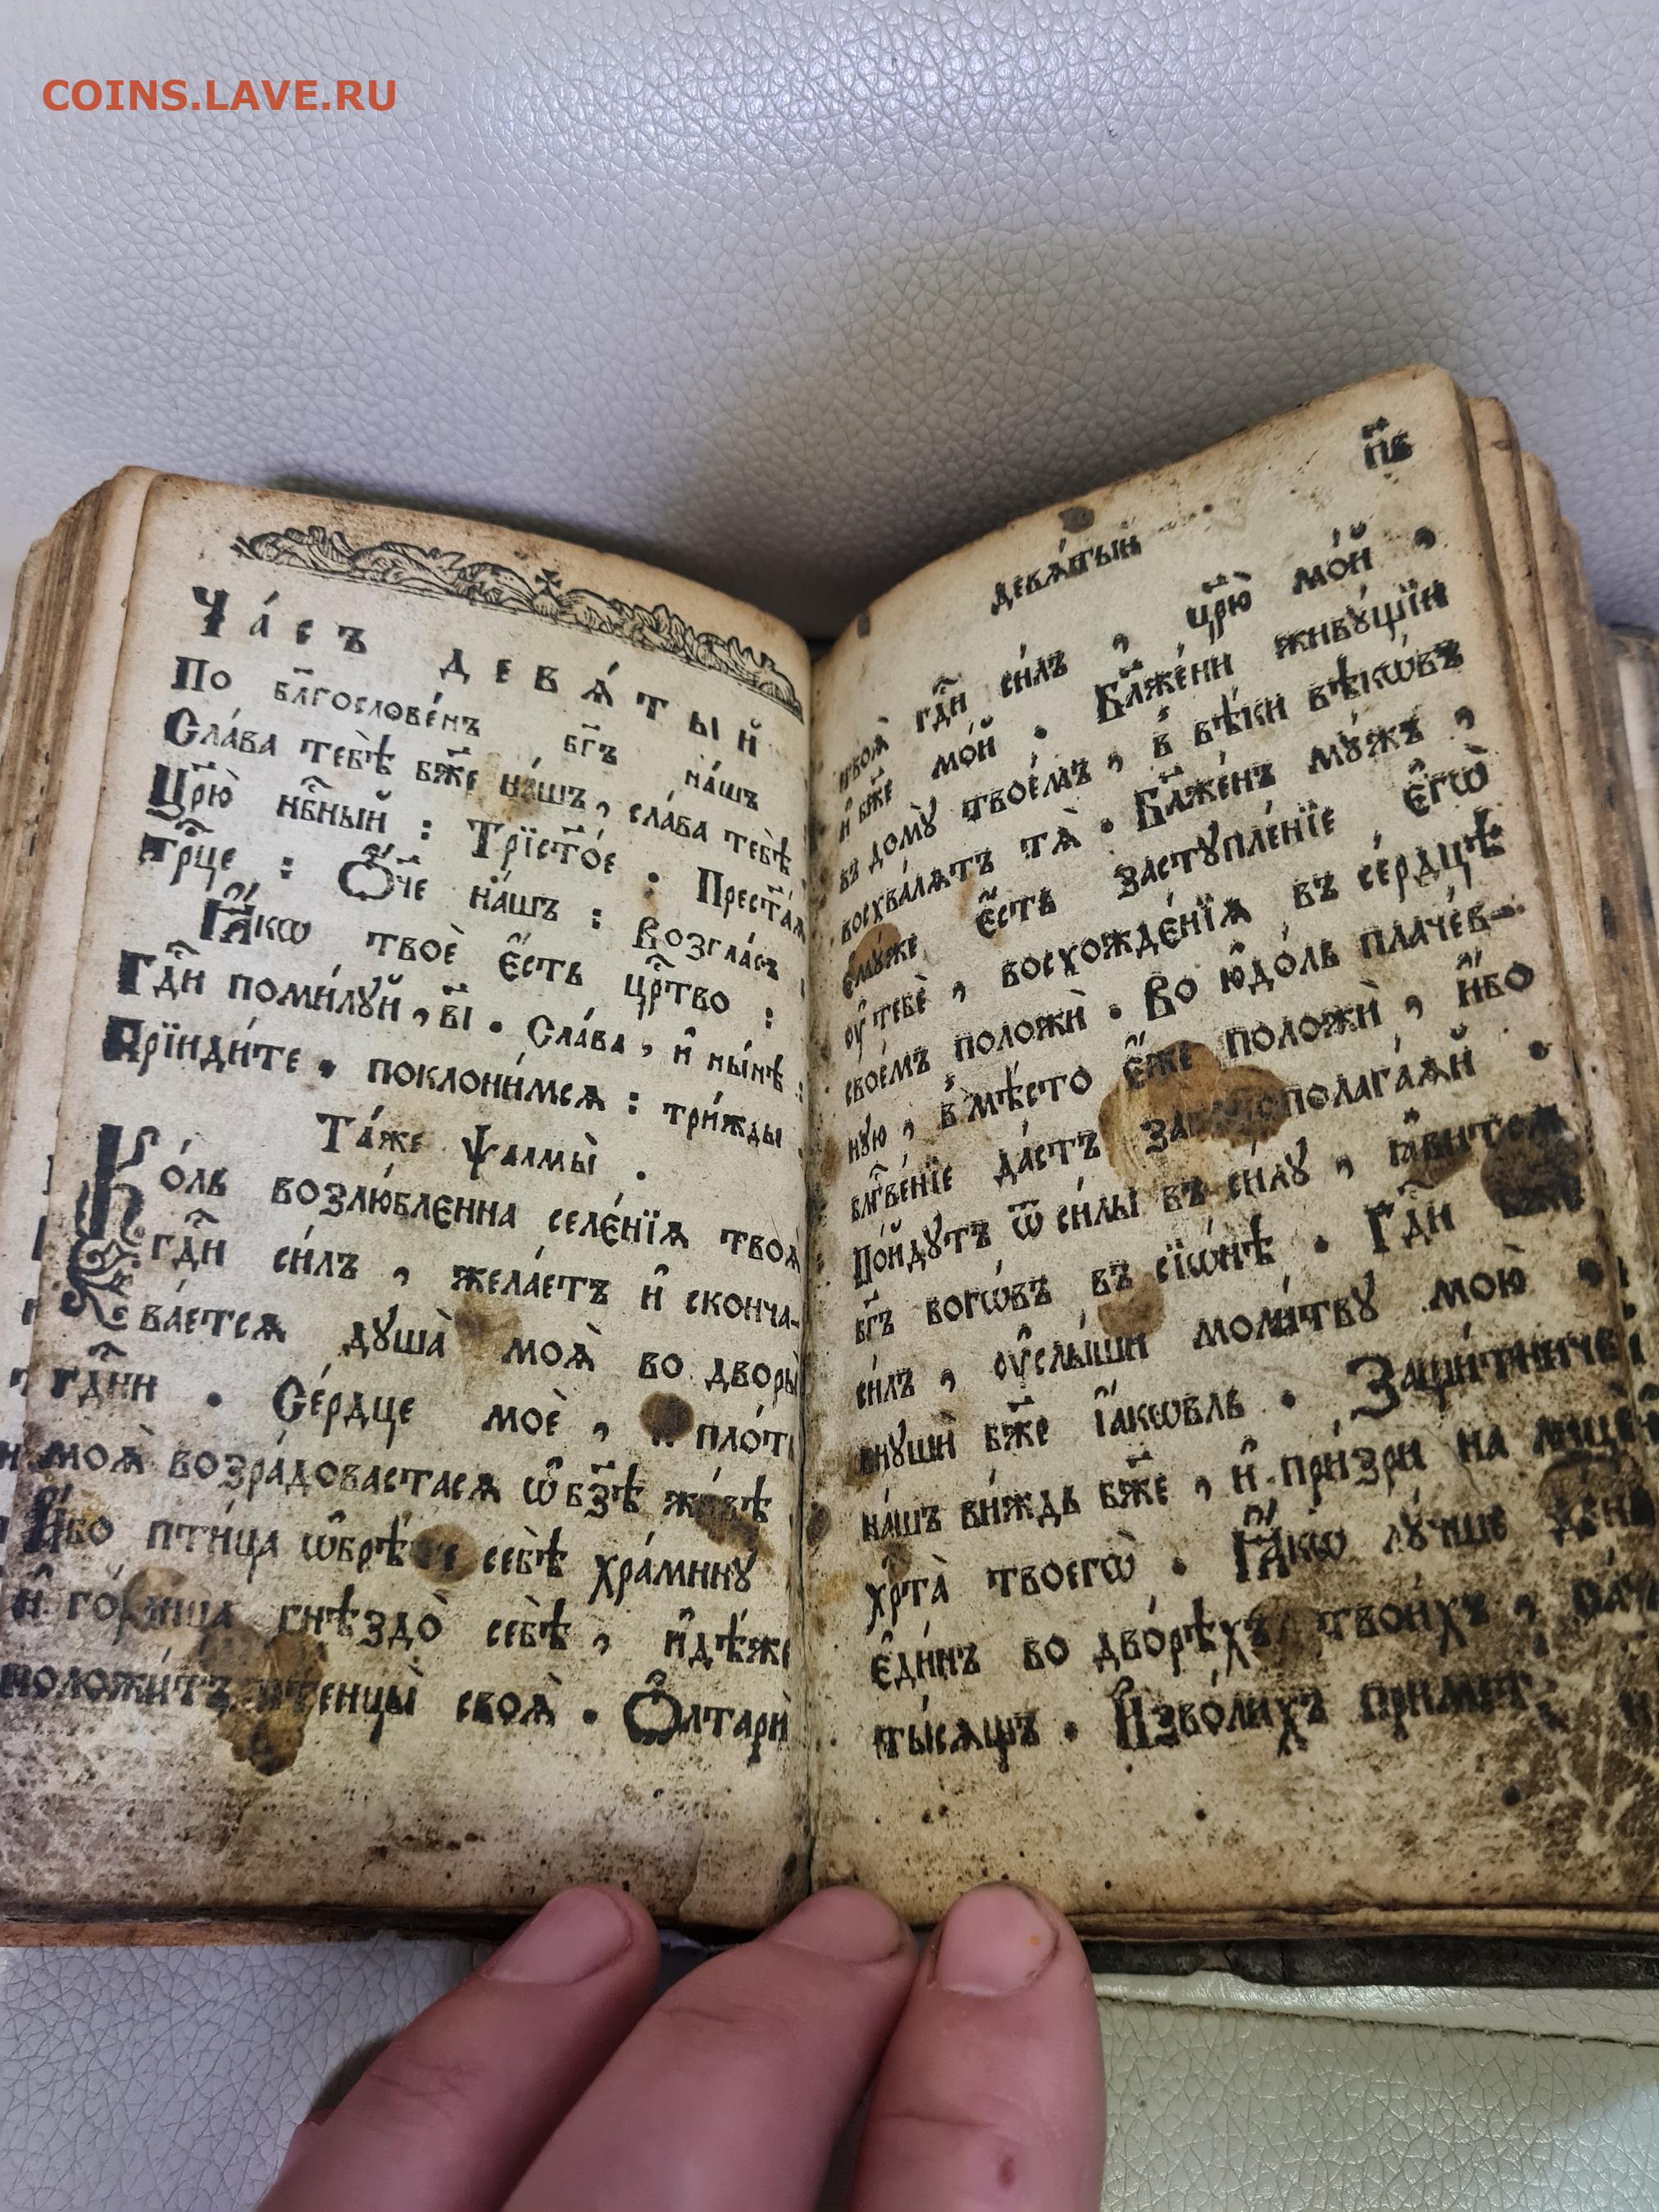 COINS.LAVE.RU
Ча́съ девѧ́тый
По бл҃гослове́нъ бг҃ъ на́шъ
Сла́ва тебѣ̀ бж҃е на́шъ, сла́ва тебѣ̀
Цр҃ю̀ нб҇ный : Трїест҃о́е . Прест҃а́ѧ
тр҇це : Ѻ҆́ч҃е на́шъ : Возгла́съ
Ꙗ҆́кѡ твоѐ є҆́сть цр҇тво :
Гд҇и поми́лꙋй , в҃і . Сла́ва , и҆ ны́нѣ :
Прїиди́те . поклони́мсѧ : три́жды
Та́же ѱалмы̀ .
Ко́ль возлю́бленна селе́нїѧ твоѧ̀
гд҇и си́лъ , жела́етъ и҆ сконча-
ва́етсѧ дꙋша̀ моѧ̀ во дворы̀
гд҇ни . Се́рдце моѐ , пло́ть
моѧ̀ возра́довастасѧ ѡ҆ бз҃ѣ жи́вѣ
И҆́бо пти́ца ѡ҆брѣ́те себѣ̀ хра́минꙋ
и҆ го́рлица гнѣздо̀ себѣ̀ , и҆дѣ́же
положи́тъ птенцы̀ своѧ̀ . Ѻ҆лтарѝ
п҃в
девѧ́тый
твоѧ̀ гд҇и си́лъ , цр҃ю̀ мо́й ,
и҆ бж҃е мо́й . Бл҃же́ни живꙋ́щїи
въ домꙋ̀ твое́мъ , в҆ вѣ́ки вѣкѡ́въ
восхва́лѧтъ тѧ̀ . Бл҃же́нъ мꙋ́жъ ,
є҆мꙋ́же є҆́сть застꙋпле́нїе є҆гѡ̀
ᲂу҆ тебѐ , восхожде́нїѧ въ се́рдцѣ
свое́мъ положѝ . Во ю҆до́ль плаче́в-
нꙋю , в҆ мѣ́сто є҆́же положѝ , и҆́бо
бл҇ве́нїе да́стъ законополага́ѧй .
По́йдꙋтъ ѿ си́лы въ си́лꙋ , ꙗ҆ви́тсѧ
бг҃ъ богѡ́въ въ сїѡ́нѣ . Гд҇и бж҃е
си́лъ , ᲂу҆слы́ши моли́твꙋ мою̀ ,
внꙋшѝ бж҃е і҆а́кѡвль . Защи́тниче
на́шъ ви́ждь бж҃е , и҆ при́зри на лицѐ
хр҇та̀ твоегѡ̀ . Ꙗ҆́кѡ лꙋ́чше де́нь
є҆ди́нъ во дво́рѣхъ твои́хъ , па́че
ты́сѧщъ . И҆зво́лихъ примѣт